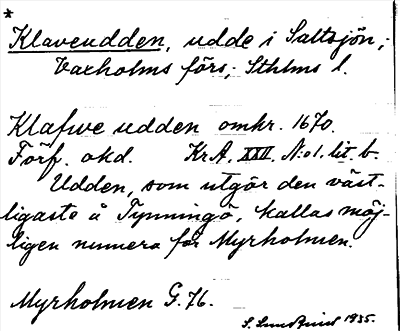 *
Klaveudden, udde i Saltsjön,
Vaxholms förs, Sthlms l.
Klafwe udden omkr. 1670.
Förf. okd. KrA, XXII, N:o 1. lit. b.
Udden, som utgör den väst-
ligaste å Tynningö, kallas möj-
ligen numera för Myrholmen.
Myrholmen G. 76.
S. Lundstrand 1935.